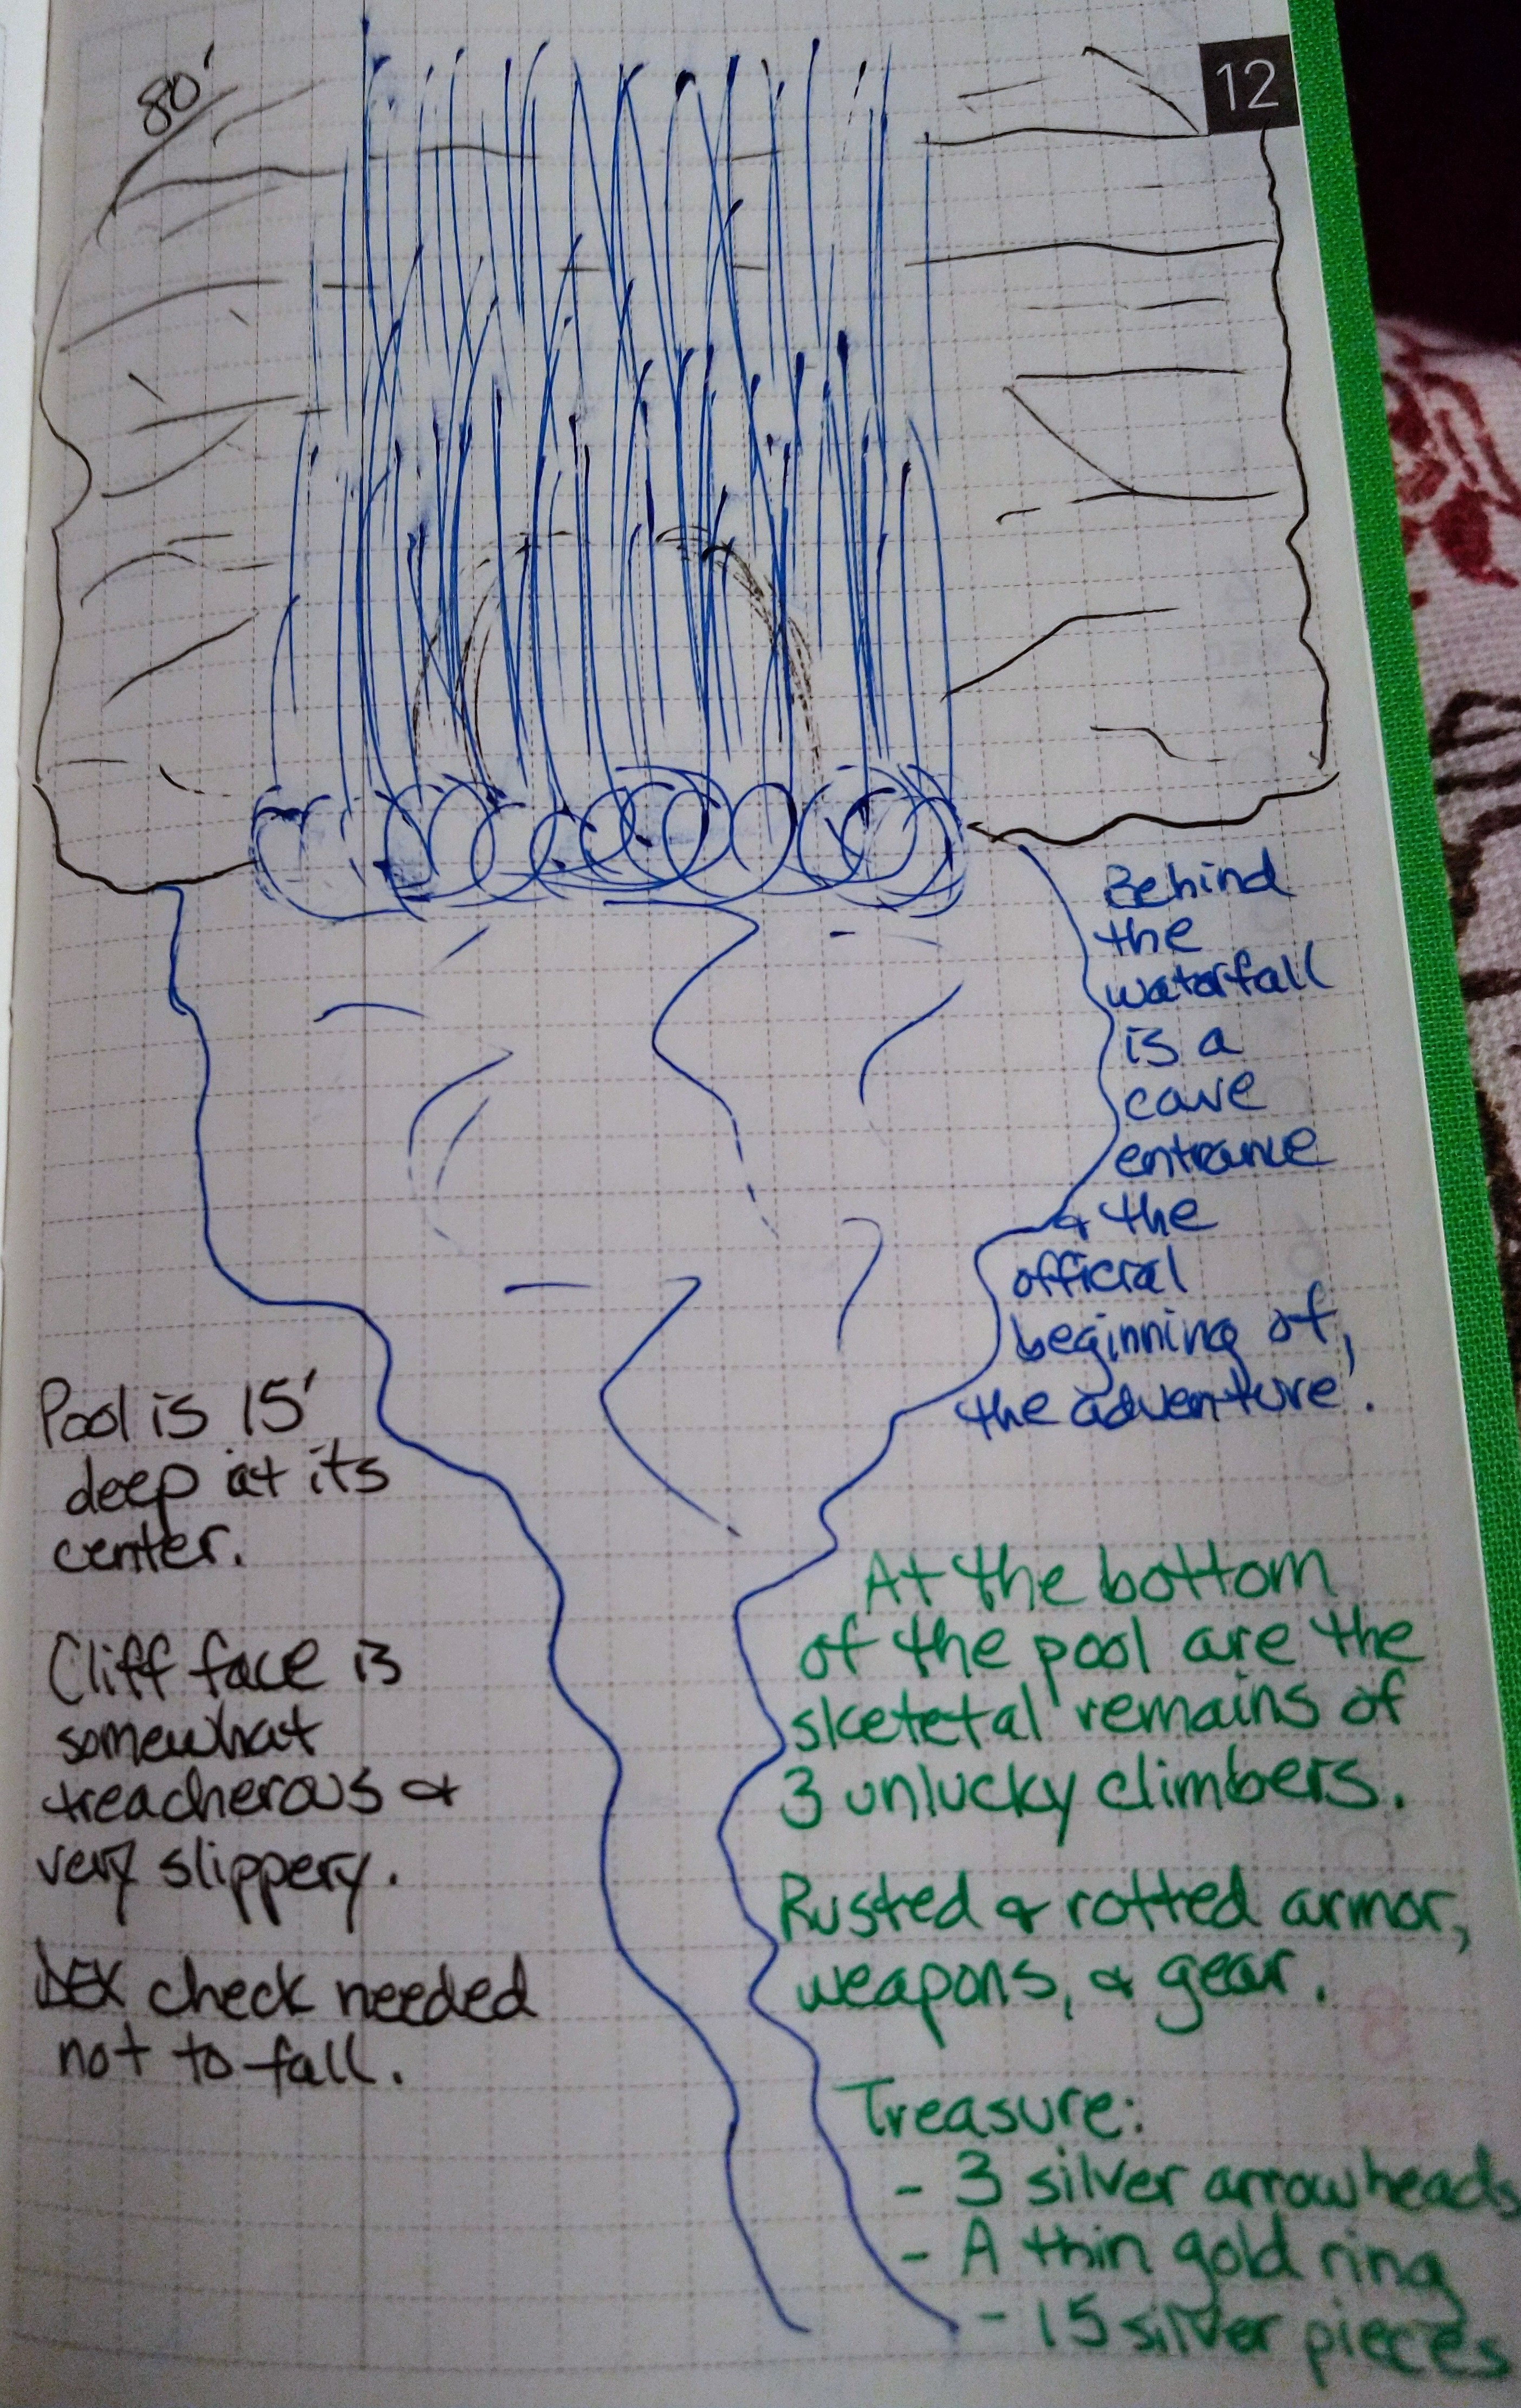 12
80'
Behind
the
waterfall
is a
cave
entrance
& the
official
beginning of,
the adventure.
Pool is 15'
deep at its
center.
Cliff face is
somewhat
treacherous &
very slippery.
DEX check needed
not to fall.
At the bottom
of the pool are the
sketetal remains of
3 unlucky climbers.
Rusted & rotted armor,
weapons, & gear.
Treasure:
- 3 silver arrowheads
- A thin gold ring
- 15 silver pieces